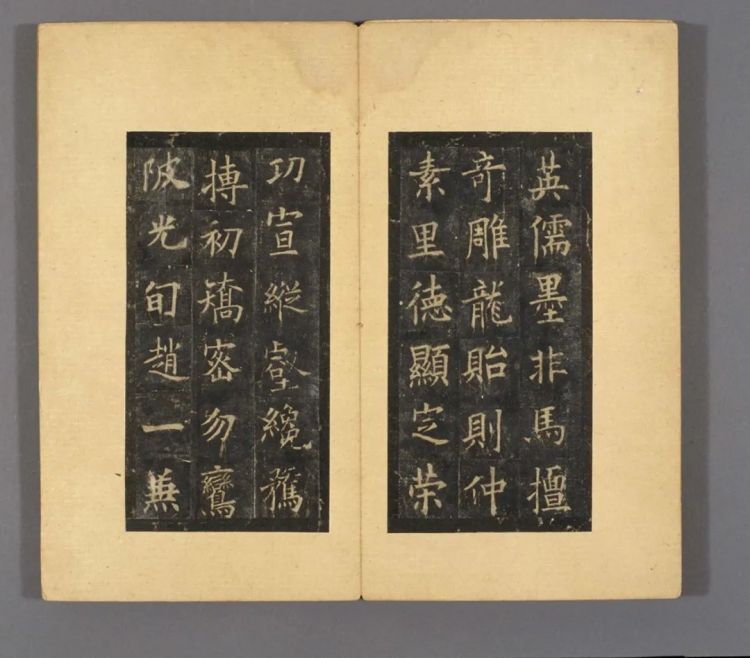 英儒墨非馬擅
奇雕龍貽則仲
素里德顯㝎荣
功宣縱壑纔
摶初矯密勿鸞
陂光旬趙一兼